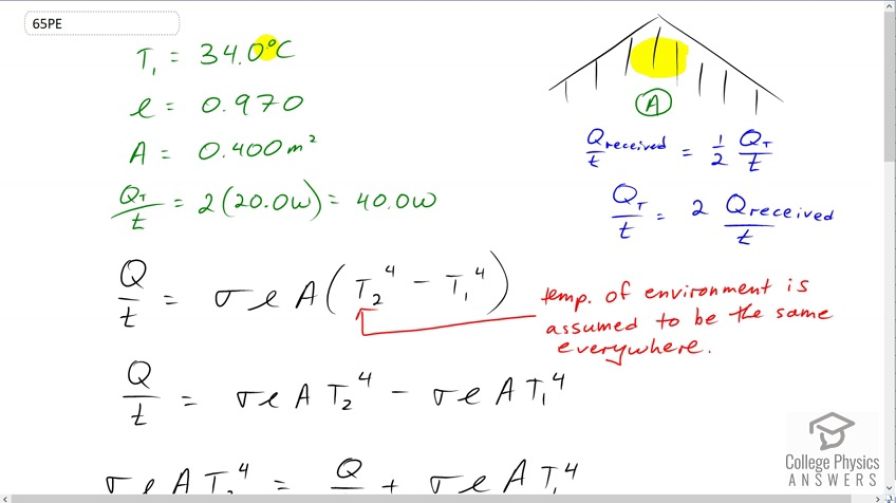 65PE
T₁ = 34.0°C
e = 0.970
A = 0.400 m²
Q_T/t = 2(20.0W) = 40.0W
A
Q_received/t = 1/2 Q_T/t
Q_T/t = 2 Q_received/t
Q/t = σ e A (T₂⁴ - T₁⁴)
temp. of environment is
assumed to be the same
everywhere.
Q/t = σ e A T₂⁴ - σ e A T₁⁴
σ e A T₂⁴ = Q + σ e A T₁⁴
College Physics
ANSWERS